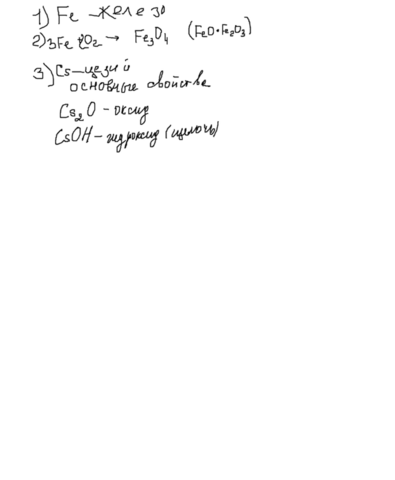 1) Fe - железо
2) 3Fe + 2O₂ → Fe₃O₄ (FeO·Fe₂O₃)
3) Cs - цезий
основные свойства
Cs₂O - оксид
CsOH - гидроксид (щелочь)